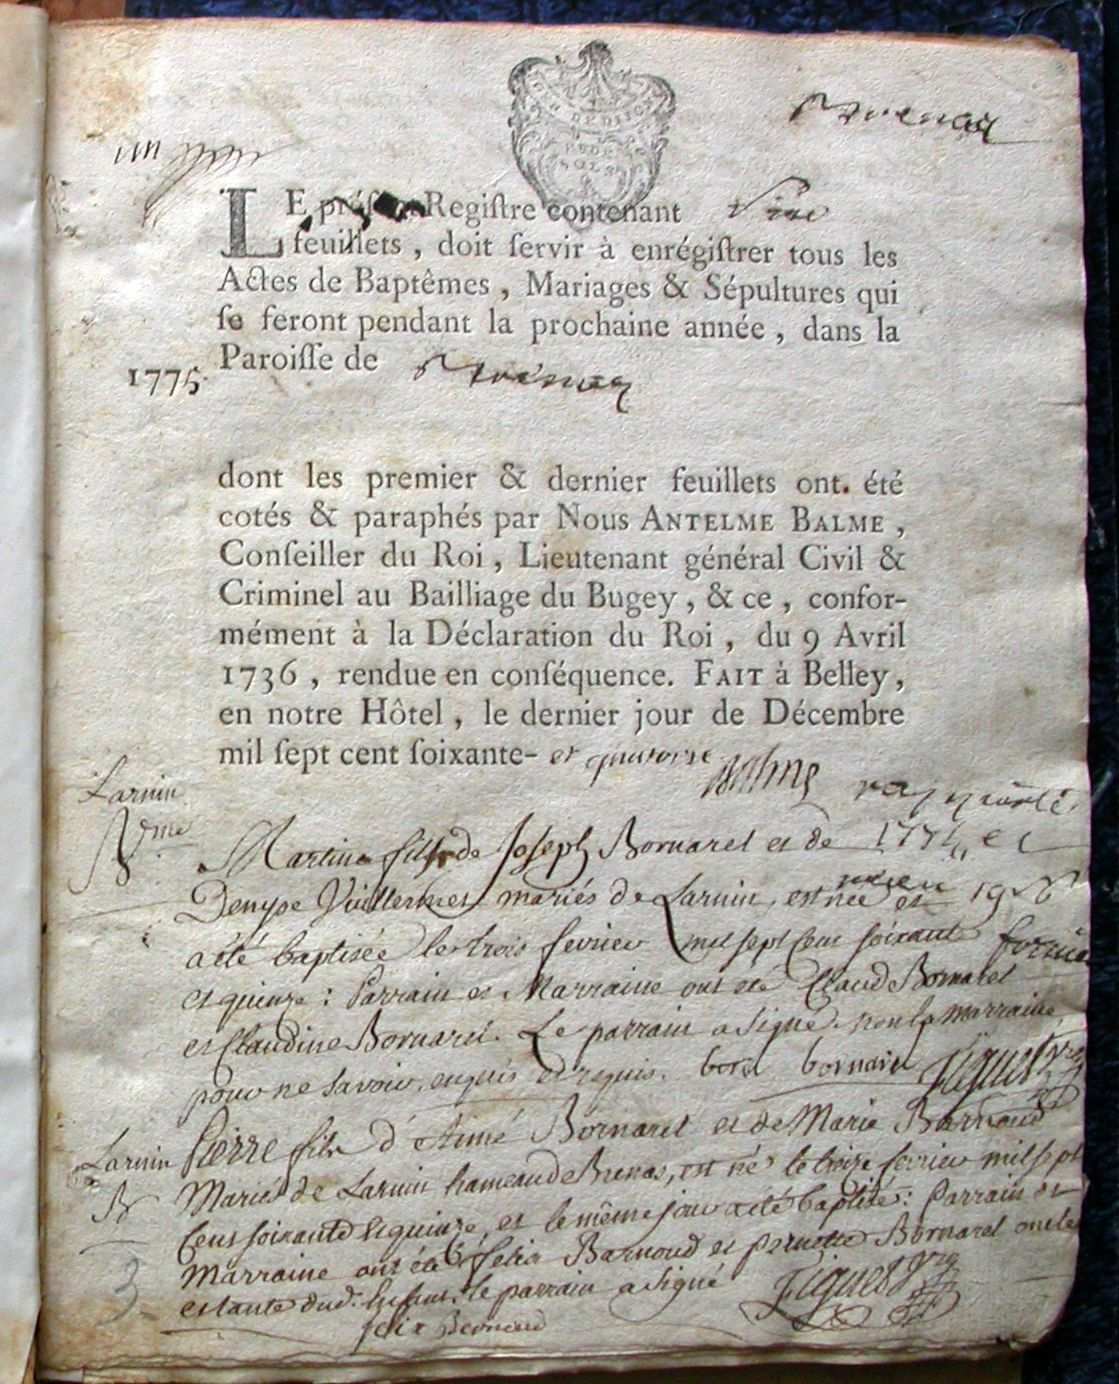 un
LE présent Regiſtre contenant
feuillets, doit ſervir à enrégiſtrer tous les
Actes de Baptêmes, Mariages & Sépultures qui
ſe feront pendant la prochaine année, dans la
Paroiſſe de
1775.
dont les premier & dernier feuillets ont. été
cotés & paraphés par Nous ANTELME BALME,
Conſeiller du Roi, Lieutenant général Civil &
Criminel au Bailliage du Bugey, & ce, confor-
mément à la Déclaration du Roi, du 9 Avril
1736, rendue en conſéquence. FAIT à Belley,
en notre Hôtel, le dernier jour de Décembre
mil ſept cent ſoixante- et quatorze
Balme
Larnin
Martine fille de Joseph Bornarel et de
Denyse Vuillermet mariés de Larnin, est née et
a été baptisée le trois fevrier mil sept cent soixante
et quinze : Parrain et Marraine ont été Claude Bornarel
et Claudine Bornarel. Le parrain a signé non la marraine
pour ne savoir, enquis et requis.
Larnin
B
Pierre fils d'Aimé Bornarel et de Marie Barnoud
Mariés de Larnin hameau de Brenas, est né le treize fevrier mil sept
cent soixante et quinze, et le même jour a été baptisé : Parrain et
Marraine ont été Felix Barnoud et pernette Bornarel oncle
et tante dud. Enfant, le parrain a signé
3